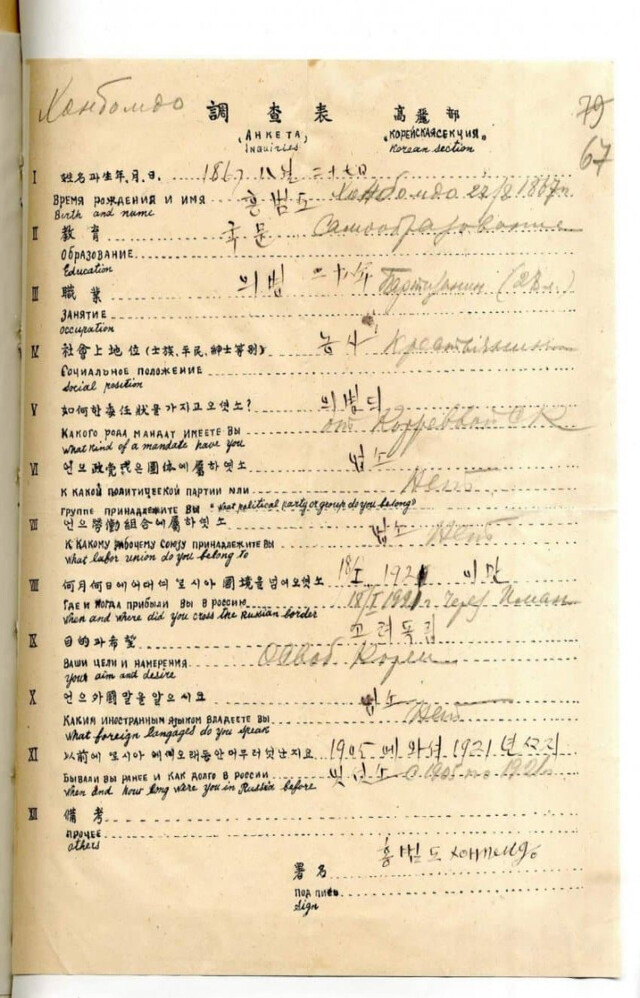 Ханбомдо
79
67
調查表 高麗部
(АНКЕТА) КОРЕЙСКАЯ СЕКЦИЯ.
Inquiries Korean section
I 姓名과生年,月,日. 1867 八월 二十七日
ВРЕМЯ РОЖДЕНИЯ И ИМЯ 홍범도 Ханбомдо 1867г.
Birth and name
II 教育 국문 Самообразование
ОБРАЗОВАНИЕ
Education
III 職業 의병 二十年 Партизан
ЗАНЯТИЕ
occupation
IV 社會上地位(士族,平民,紳士等別) 농사
СОЦИАЛЬНОЕ ПОЛОЖЕНИЕ
social position
V 如何한委任狀을가지고오앳소?
КАКОГО РОДА МАНДАТ ИМЕЕТЕ ВЫ от
What kind of a mandate have you
VI 언으政党或은團体에屬하엿소 업소
К КАКОЙ ПОЛИТИЧЕСКОЙ ПАРТИИ ИЛИ Нет
ГРУППЕ ПРИНАДЛЕЖИТЕ ВЫ "What political party or group do you belong?
VII 언으勞働組合에屬하엿소 업소
К КАКОМУ РАБОЧЕМУ СОЮЗУ ПРИНАДЛЕЖИТЕ ВЫ Нет
What labor union do you belong to
VIII 何月何日에어대여 로시아 國境을넘어오앳소 1921 이만
ГДЕ И КОГДА ПРИБЫЛИ ВЫ В РОССИЮ 18/I 1921г. через Иман
When and where did you cross the Russian border
IX 目的과希望 고려독립
ВАШИ ЦЕЛИ И НАМЕРЕНИЯ Освоб Кореи
Your aim and desire
X 언으外國말을알으시요 업소
КАКИМ ИНОСТРАННЫМ ЯЗЫКОМ ВЛАДЕЕТЕ ВЫ Нет
What foreign langages do you speak
XI 以前에 로시아 에
БЫВАЛИ ВЫ РАНЕЕ И КАК ДОЛГО В РОССИИ
When and how long were you in Russia before
XII 備考
ПРОЧЕЕ
others
홍범도
署名
ПОДПИСЬ
Sign